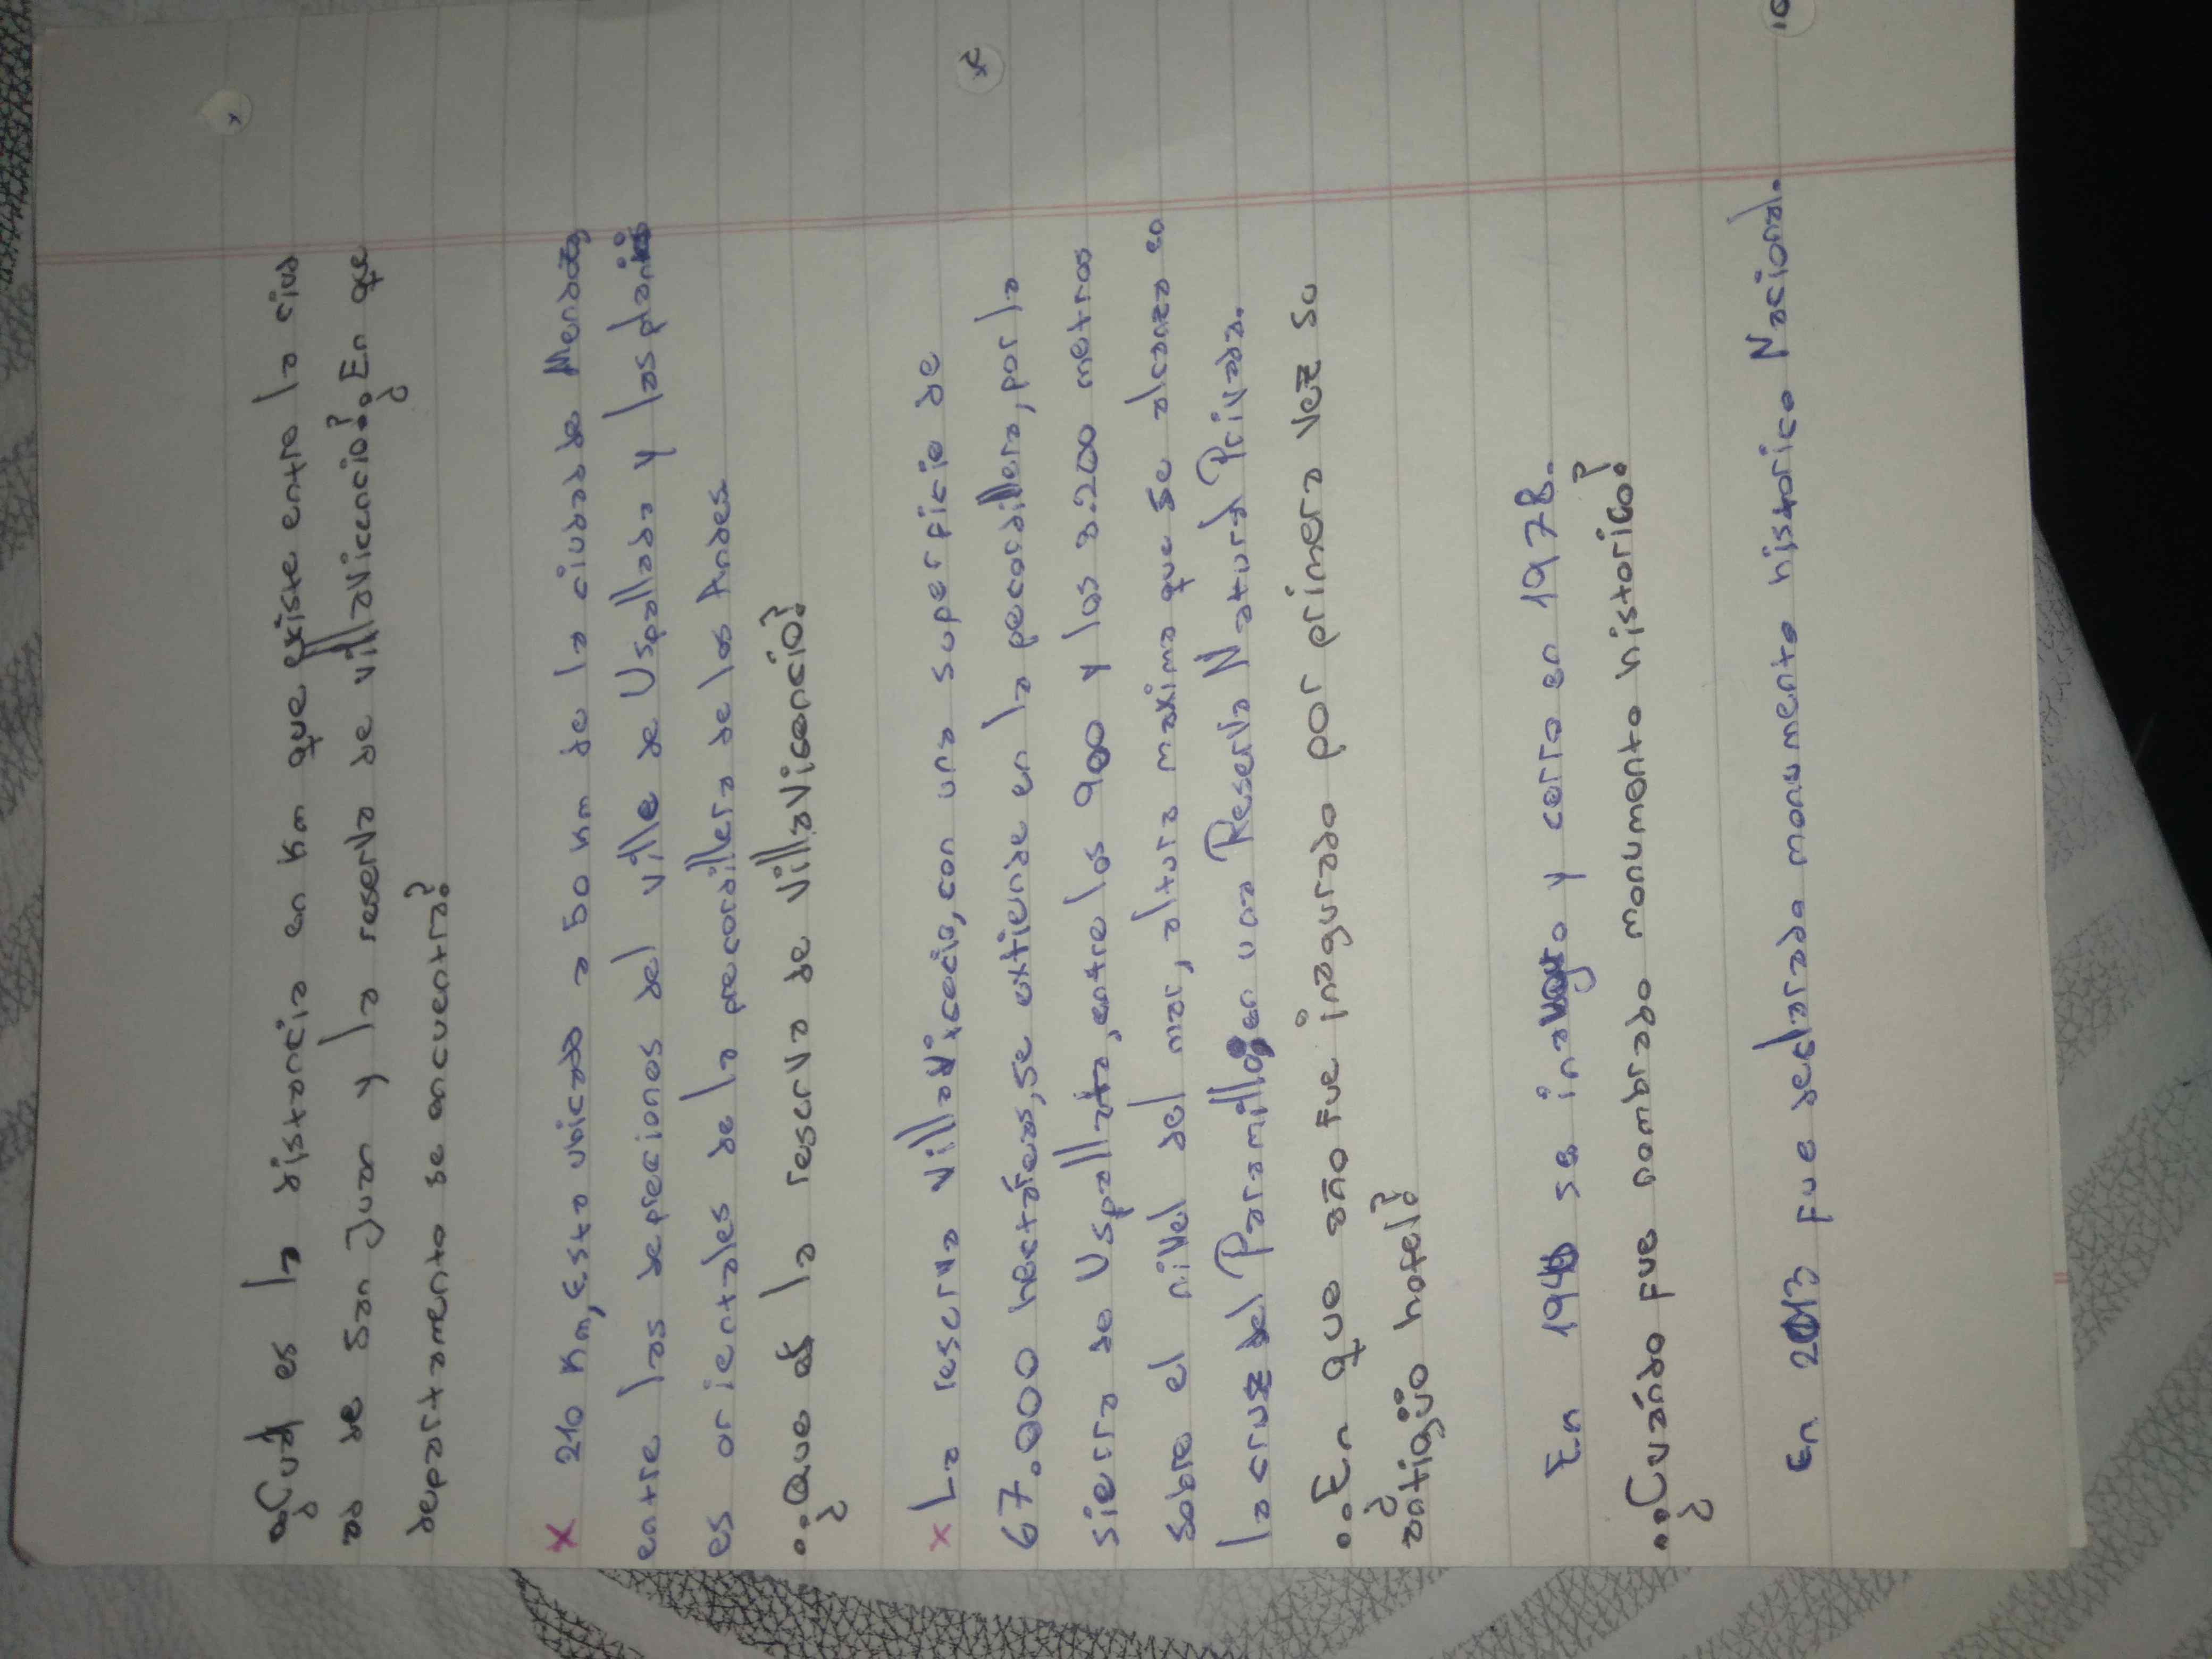 •¿Cual es la distancia en Km que existe entre la ciud
ad de San Juan y la reserva de villavicencio?•¿En que
departamento se encuentra?
x 210 Km, Esta ubicado a 50 Km de la ciudad de Mendoza
entre las depreciones del ville de Uspallada y las planici
es orientales de la precordillera de los Andes.
•¿Que es la reserva de villavicencio?
x La reserva villavicecio, con una superficie de
67.000 hectáreas, se extiende en la pecordillera, por la
sierra de Uspallata, entre los 900 y los 3.200 metros
sobre el nivel del mar, altura maxima que se alcanza en
la cruz del Paramillo, en una Reserva Natural Privada.
•¿En que año fue inagurado por primera vez su
antigüo hotel?
En 1940 se inauguro y cerro en 1978.
•¿Cuándo fue nombrado monumento historico?
En 2013 fue declarado monumento historico Nacional.